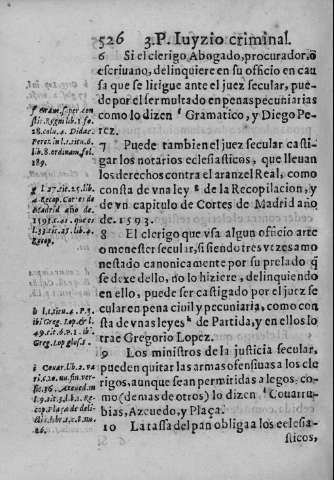 526 3.P. Iuyzio criminal.
6 Si el clerigo Abogado, procurador, ò
escriuano, delinquiere en su officio en cau
sa que se sirigue ante el juez secular, pue-
de por el ser multado en penas pecuniarias
como lo dizen f Gramatico, y Diego Pe-
rez.
7 Puede tambien el juez secular casti-
gar los notarios eclesiasticos, que lleuan
los derechos contra el aranzel Real, como
consta de vna ley g de la Recopilacion, y
de vn capitulo de Cortes de Madrid año
de 1593.
8 El clerigo que vsa algun officio arte
o menester secular, si siendo tres vezes amo
nestado canonicamente por su prelado q̃
se dexe dello, no lo hiziere, delinquiendo
en ello, puede ser castigado por el juez se
cular en pena ciuil y pecuniaria, como con
sta de vnas leyes h de Partida, y en ellos lo
trae Gregorio Lopez.
9 Los ministros de la justicia secular,
pueden quitar las armas ofensiuas a los cle
rigos, aunque sean permitidas a legos, co-
mo (demas de otros) lo dizen i Couarru-
bias, Azeuedo, y Plaça.
10 La tassa del pan obliga a los eclesia-
sticos,
f Gram. super con
stit. Regni lib. 1. fo
28. colu. 4. Didac.
Perez. in l. 1. tit. 6
lib. 8. ordinam. fol.
189.
g l. 27. tit. 25. lib.
4. Recop. Cortes de
Madrid año de
1593. c. 41.
l. 33. tit. 25. lib. 4.
Recop.
h l. 1. titu. 4. P. 3.
ibi Greg. Lop. & l.
49. tit. 6. P. 1. ibi
Greg. Lop. glus. 1.
i Couar. lib. 2. va
ri. c. 20. nu. fin. ver-
sic. 36. Azeued. in
l. 9. tit. 3. lib. 1. Re
cop. Plaça de deli-
ctis, lib. 1. c. 32. nu.
26.